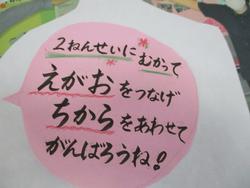 2ねんせいにむかって
えがおをつなげ
ちからをあわせて
がんばろうね!